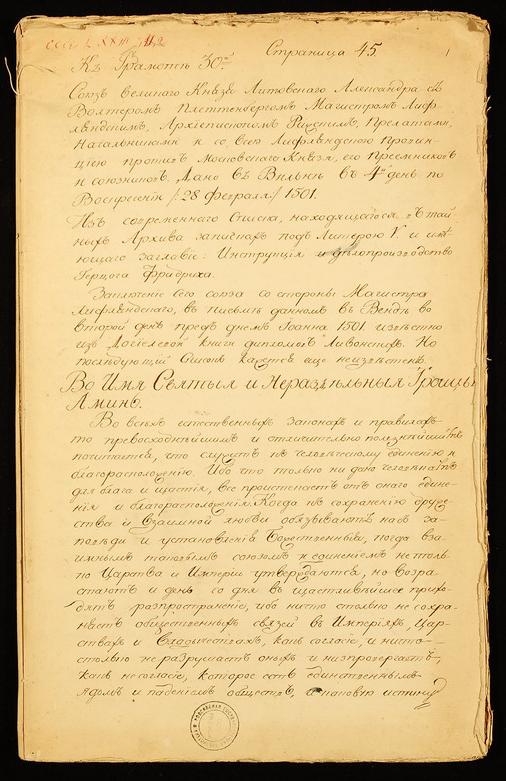 Страница 45.
Къ Грамотѣ 30й
Союзъ великаго Князя Литовскаго Александра съ
Волтеромъ Плеттенбергомъ Магистромъ Лиф-
ляндскимъ, Архіепископомъ Рижскимъ, Прелатами,
Начальниками и со всею Лифляндскою провин-
ціею противъ Московскаго Князя, его преемниковъ
и союзниковъ. Дано въ Вильнѣ въ 4й день по
Воскресеніи /:28 февраля:/ 1501.
Изъ современнаго списка, находящагося въ тай-
ныхъ Архива запискахъ подъ литерою V. и имѣ-
ющаго заглавіе: Инструкція и дѣлопроизводство
Герцога Фридриха.
Заключеніе сего союза со стороны Магистра
Лифляндскаго, въ письмѣ данномъ въ Венденѣ во
второй день предъ днемъ Іоанна 1501 извѣстно
изъ Догіелевой книги дипломовъ Ливонскихъ. Но
послѣдующій списокъ кажется еще неизвѣстенъ.
Во Имя Святыя и Нераздѣльныя Троицы
Аминь.
Во всѣхъ естественныхъ законахъ и правилахъ
то превосходнѣйшимъ и отличительно полезнѣйшимъ
почитается, что служитъ къ человѣческому единенію и
благорасположенію. Ибо что только ни дано человѣкамъ
для блага и щастія, все проистекаетъ отъ онаго едине-
нія и благорасположенія. Когда къ сохраненію друже-
ства и взаимной любви обязываютъ насъ за-
повѣди и установленія Божественныя, когда вза-
имнымъ таковымъ союзомъ и единеніемъ не толь-
ко Царства и Имперіи утверждаются, но возра-
стаютъ и день со дня въ щастливѣйшее прихо-
дятъ распространеніе, ибо ничто столько не сохра-
няетъ общественныхъ связей въ Имперіяхъ, Цар-
ствахъ и Владычествахъ, какъ согласіе, и ничто
столько не разрушаетъ оныхъ и низпровергаетъ,
какъ несогласіе, которое есть единственнымъ
ядомъ и паденіемъ обществъ, а таковую истину